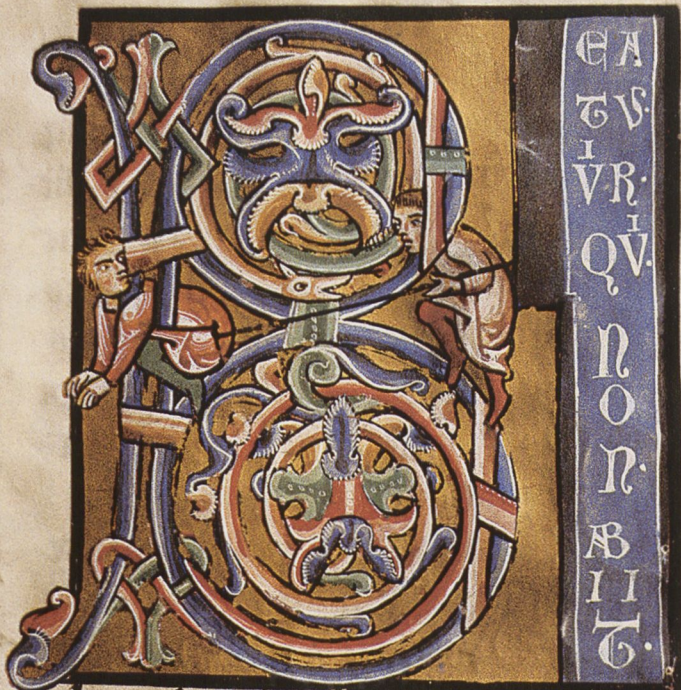 B
EA
TV·
VIR·
QVI·
N
O
N·
AB
II
T·